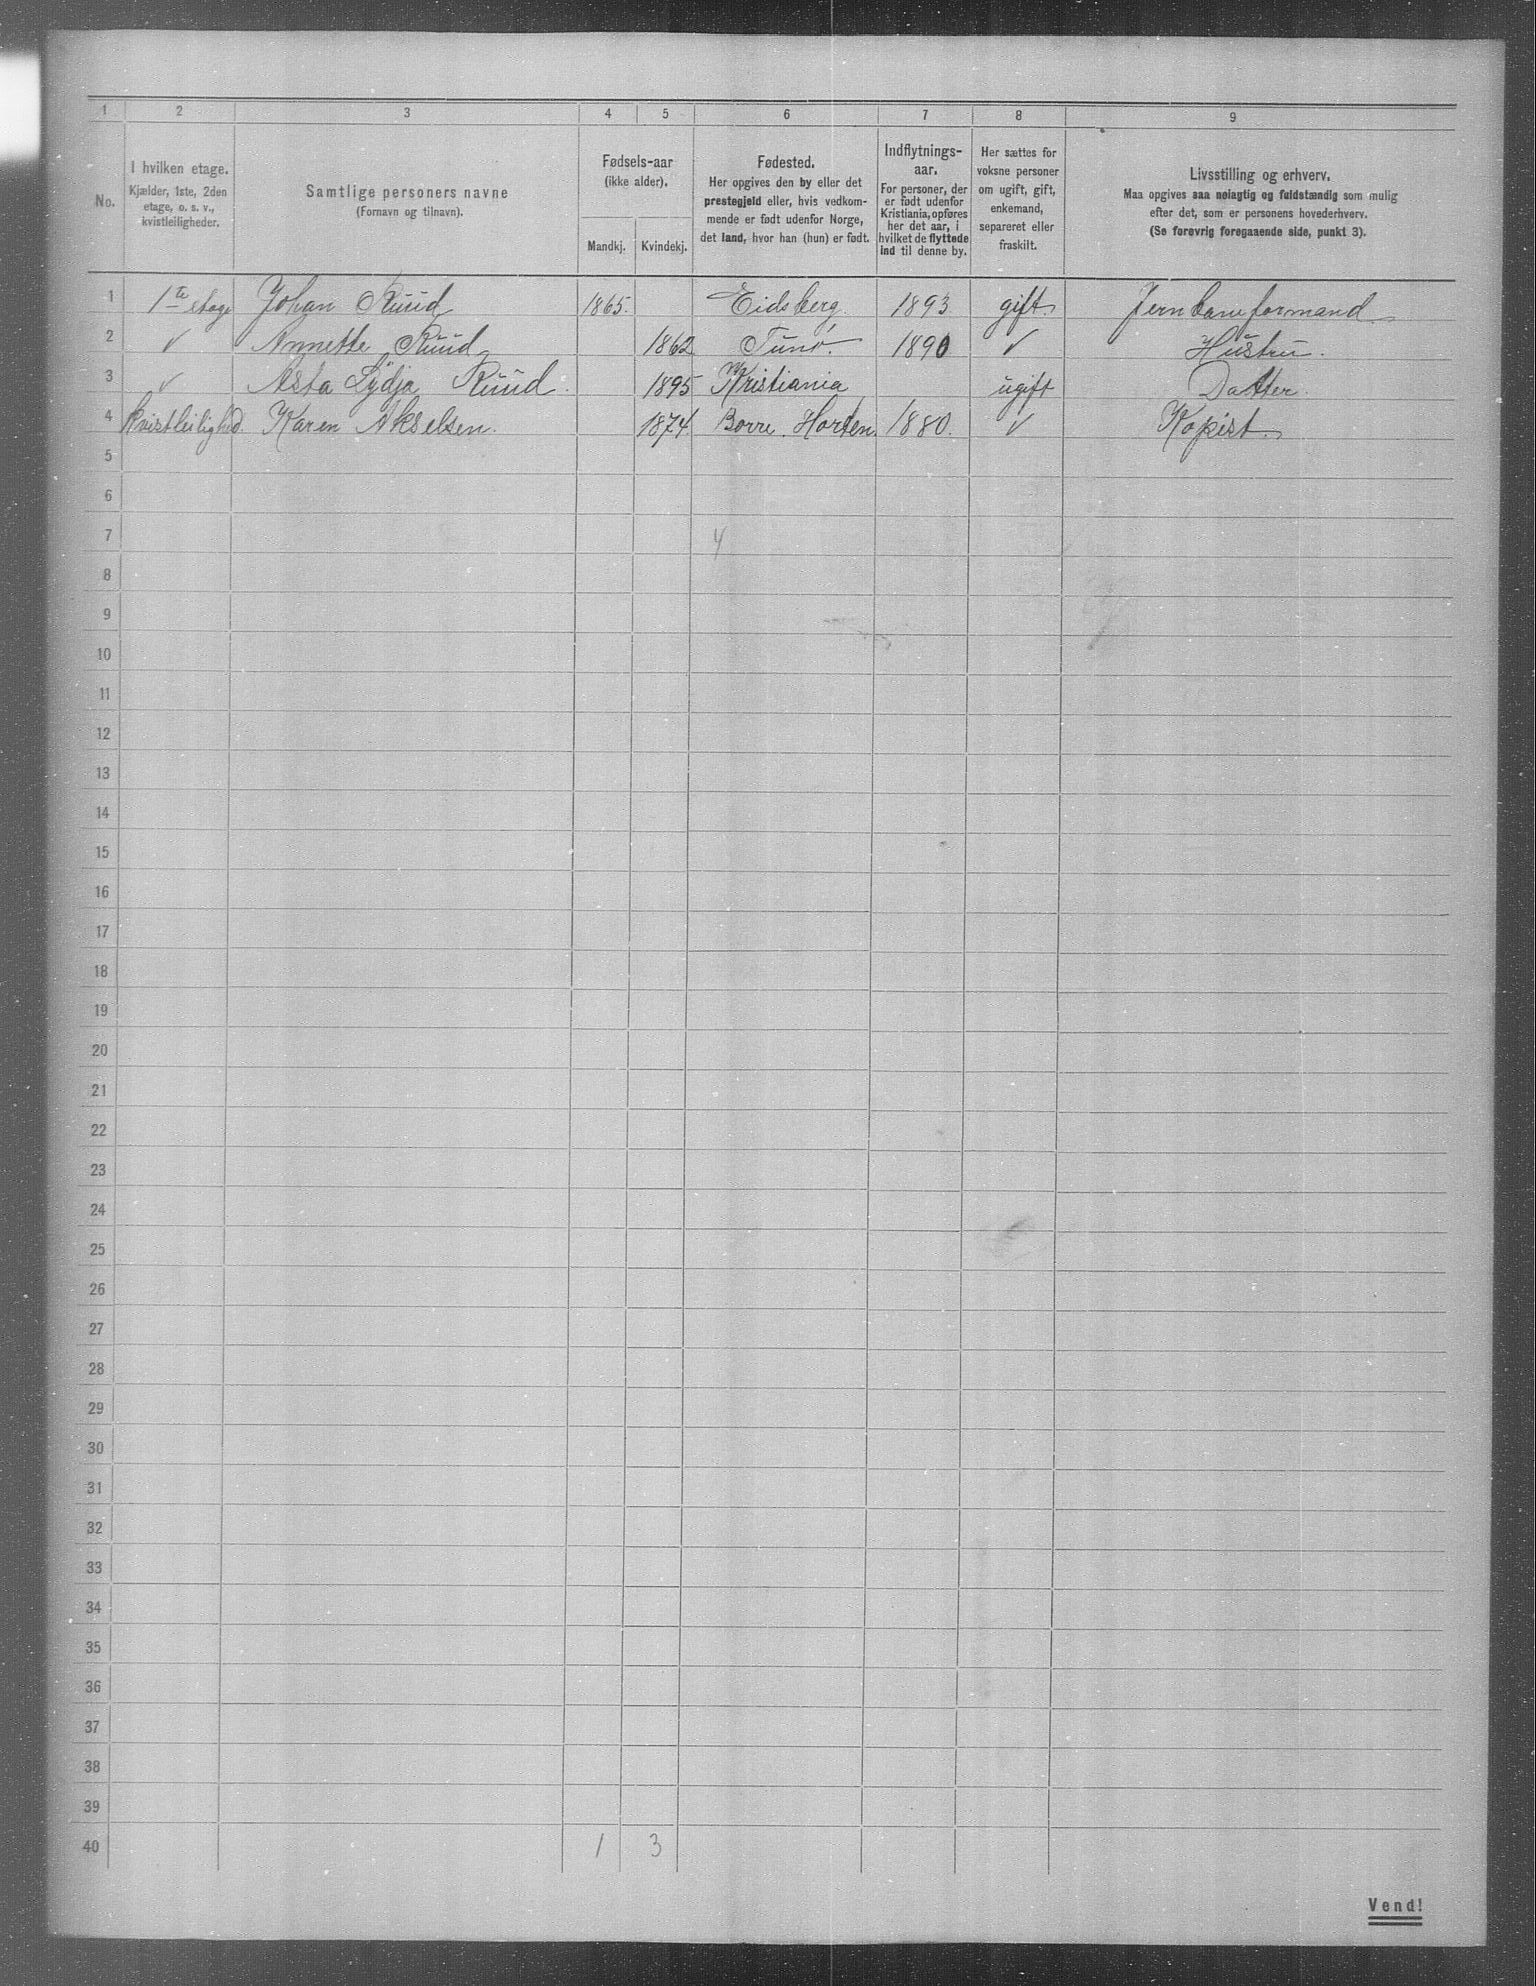 1 2 3 4 5 6 7 8 9
No.
I hvilken etage.
Kjælder, 1ste, 2den
etage, o. s. v.,
kvistleiligheder.
Samtlige personers navne
(Fornavn og tilnavn).
Fødsels-aar
(ikke alder).
Mandkj. Kvindekj.
Fødested.
Her opgives den by eller det
prestegjeld eller, hvis vedkom-
mende er født udenfor Norge,
det land, hvor han (hun) er født.
Indflytnings-
aar.
For personer, der
er født udenfor
Kristiania, opføres
her det aar, i
hvilket de flyttede
ind til denne by.
Her sættes for
voksne personer
om ugift, gift,
enkemand,
separeret eller
fraskilt.
Livsstilling og erhverv.
Maa opgives saa nøiagtig og fuldstændig som mulig
efter det, som er personens hovederhverv.
(Se forøvrig foregaaende side, punkt 3).
1 1te etage Johan Ruud 1865. Eidsberg 1893 gift. Jernbaneformand
2 ✓ Annette Ruud 1862 Tunø. 1890 ✓ Hustru.
3 ✓ Asta Lydja Ruud. 1895 Kristiania ugift Datter.
4 kvistleilighed. Karen Akselsen. 1874. Borre. Horten. 1880. ✓ Kopist.
5
6
7 4
8
9
10
11
12
13
14
15
16
17
18
19
20
21
22
23
24
25
26
27
28
29
30
31
32
33
34
35
36
37
38
39
40 1 3
Vend!